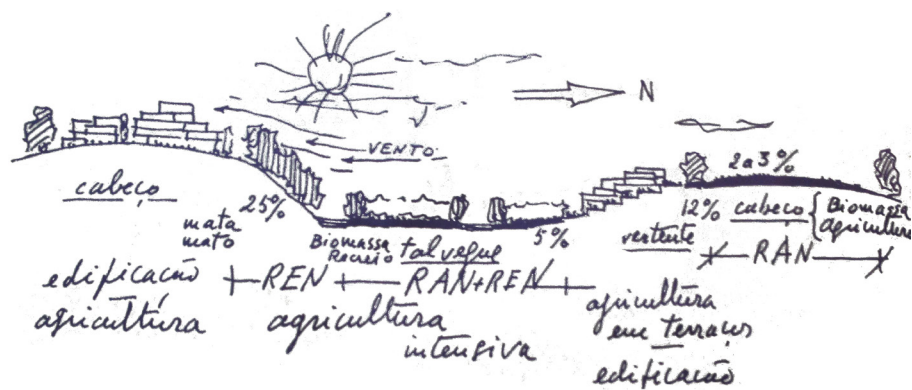 N
VENTO
2 a 3%
cabeço
25%
mata
mato
Biomassa
Recreio
talvegue
5%
12%
vertente
cabeço { Biomassa
Agricultura
RAN
REN
RAN+REN
edificação
agricultura
agricultura
intensiva
agricultura
em terraços
edificação